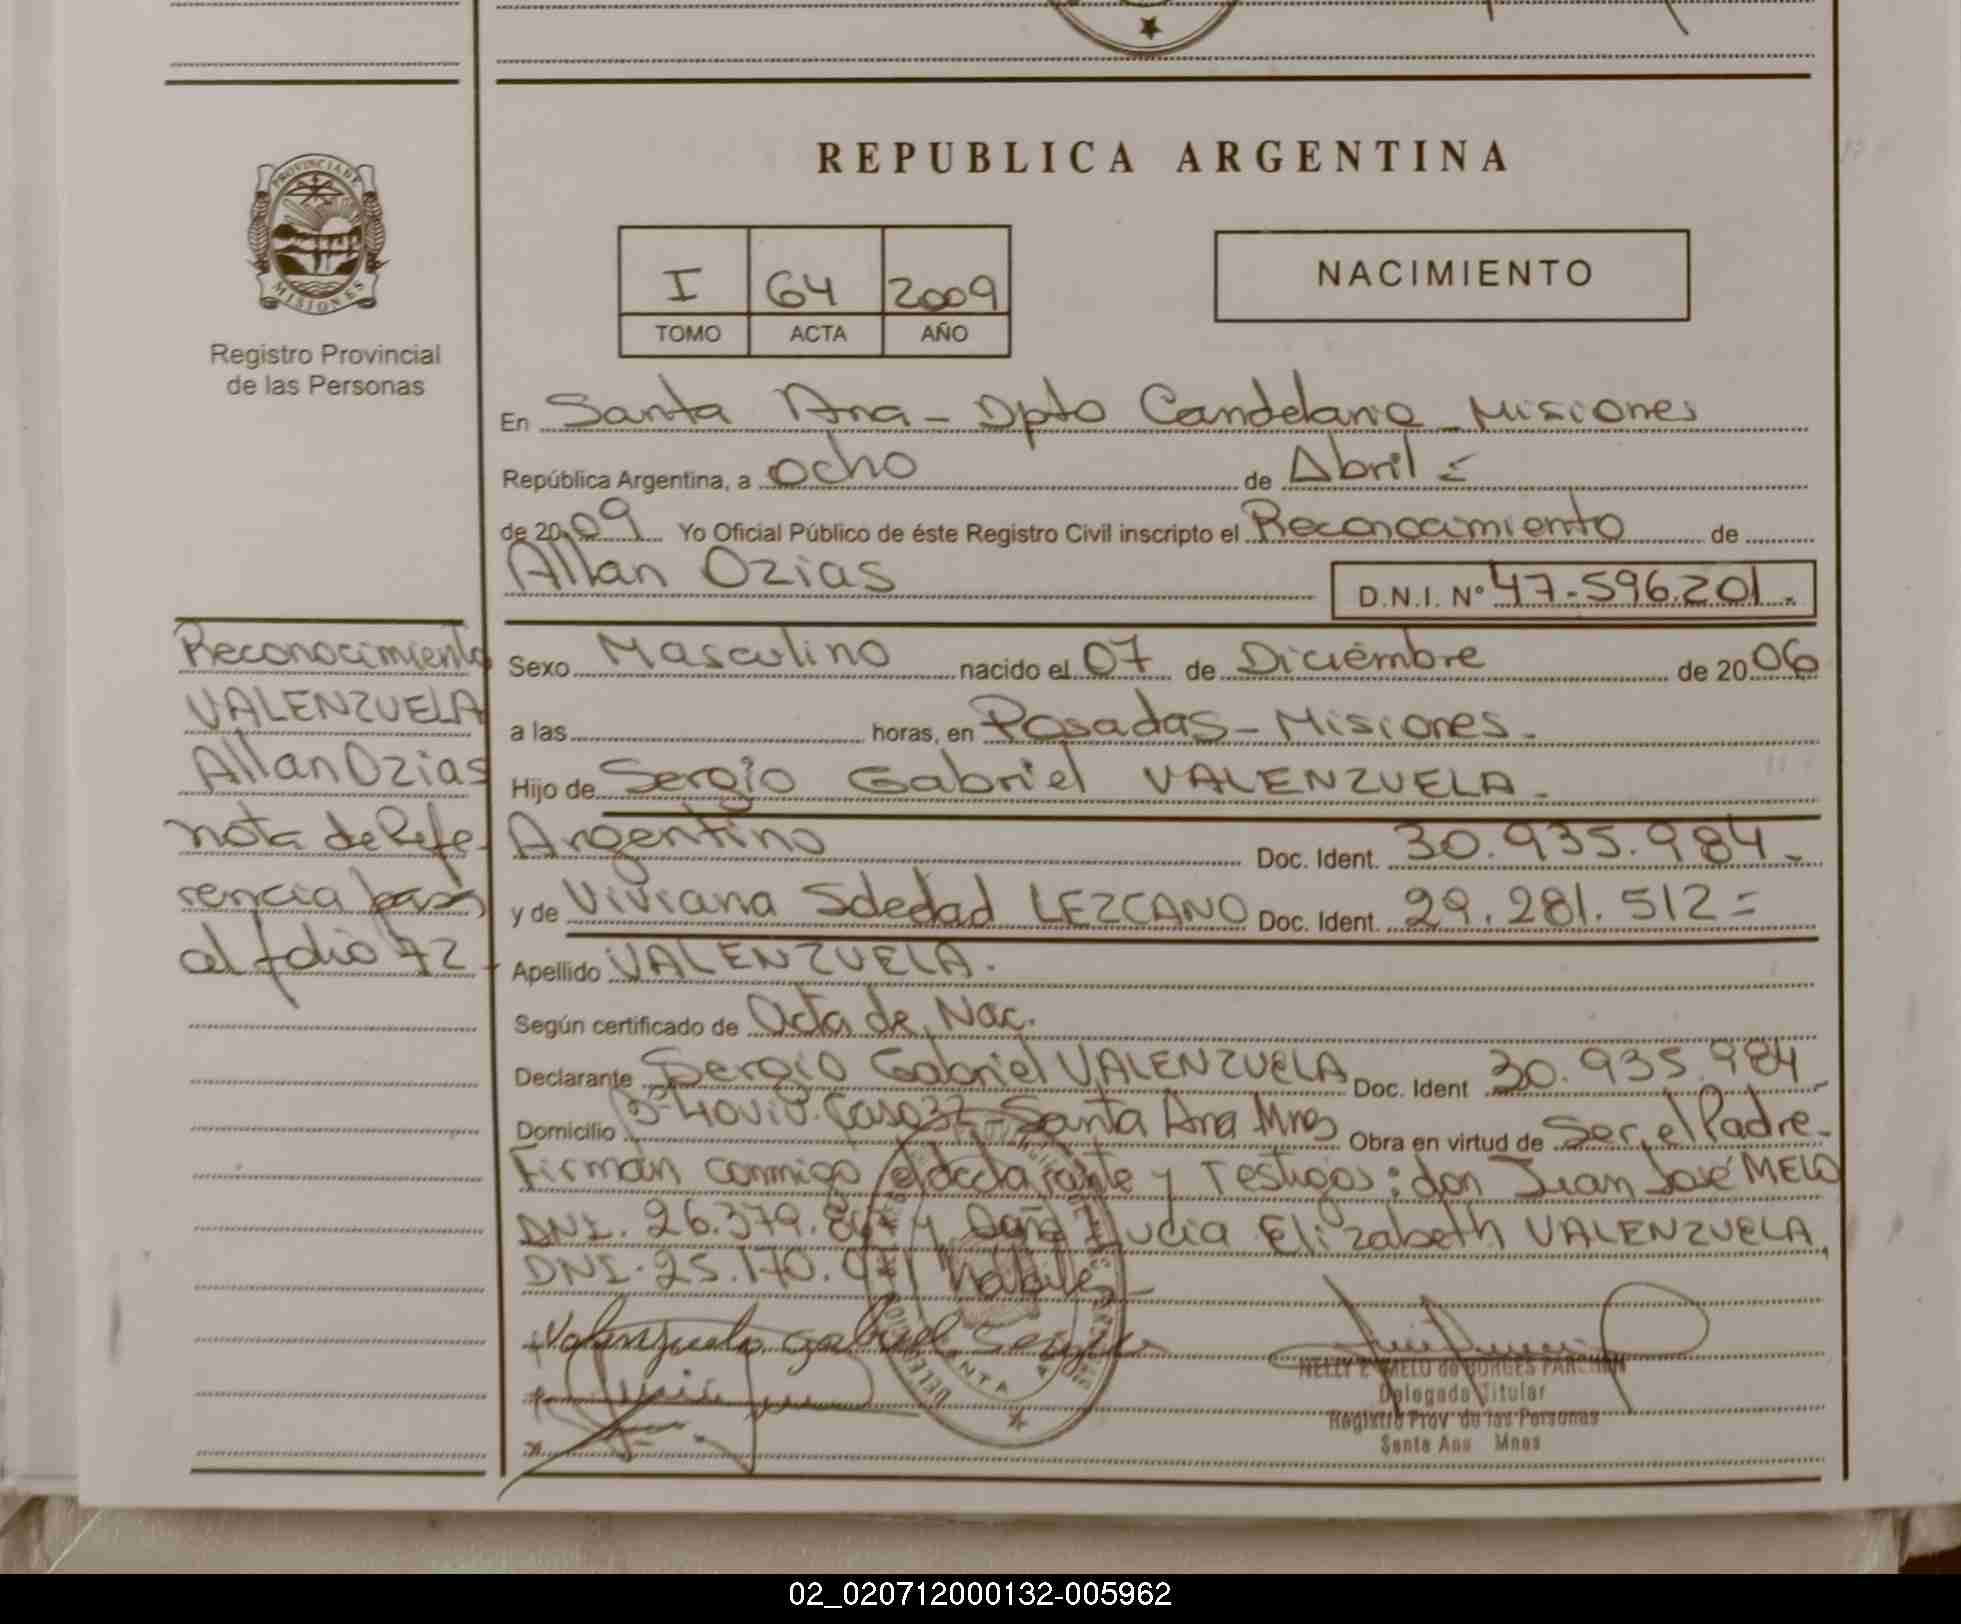 REPUBLICA ARGENTINA
PROVINCIA DE MISIONES
Registro Provincial
de las Personas
I 64 2009
TOMO ACTA AÑO
NACIMIENTO
En Santa Ana - Dpto Candelaria - Misiones
República Argentina, a ocho de Abril =
de 2009 Yo Oficial Público de éste Registro Civil inscripto el Reconocimiento de
Allan Ozias D.N.I. Nº 47.596.201.-
Sexo Masculino nacido el 07 de Diciembre de 2006
a las horas, en Posadas - Misiones.
Hijo de Sergio Gabriel VALENZUELA.
Argentino Doc. Ident. 30.935.984.-
y de Viviana Soledad LEZCANO Doc. Ident. 29.281.512=
Apellido VALENZUELA.
Según certificado de Acta de Nac.
Declarante Sergio Gabriel VALENZUELA Doc. Ident 30.935.984.-
Domicilio Santa Ana Mnes Obra en virtud de Ser el Padre.-
Firman conmigo el declarante y testigos: don Juan José MELO
DNI. 26.379. y Doña Lucia Elizabeth VALENZUELA,
DNI. 25.170. habiles
Valenzuela Gabriel Sergio
NELLY E. MELO de BORGES PARCHEN
Delegada Titular
Registro Prov de las Personas
Santa Ana Mnes
Reconocimiento
VALENZUELA
Allan Ozias
nota de Refe-
rencia
al folio 72
02_020712000132-005962